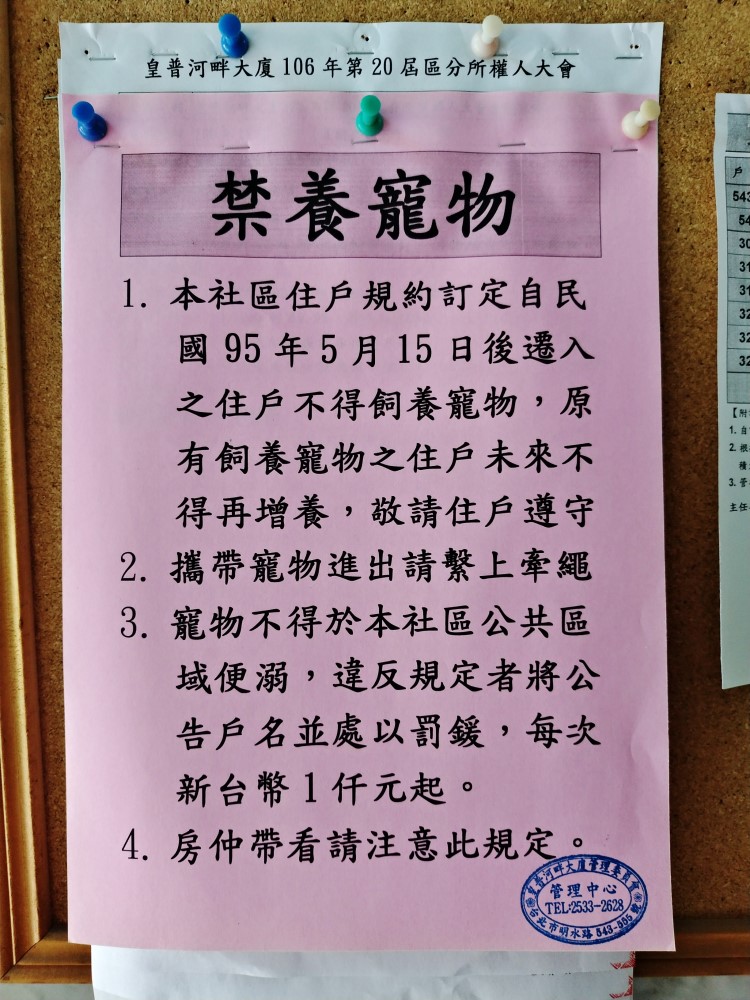 皇普河畔大廈106年第20屆區分所權人大會
禁養寵物
1. 本社區住戶規約訂定自民
國95年5月15日後遷入
之住戶不得飼養寵物，原
有飼養寵物之住戶未來不
得再增養，敬請住戶遵守
2. 攜帶寵物進出請繫上牽繩
3. 寵物不得於本社區公共區
域便溺，違反規定者將公
告戶名並處以罰鍰，每次
新台幣1仟元起。
4. 房仲帶看請注意此規定。
皇普河畔大廈管理委員會
管理中心
TEL:2533-2628
台北市明水路543-555號
戶
543
54
30
31
31
32
32
32
【附
1. 自
2. 根
積
3. 管
主任